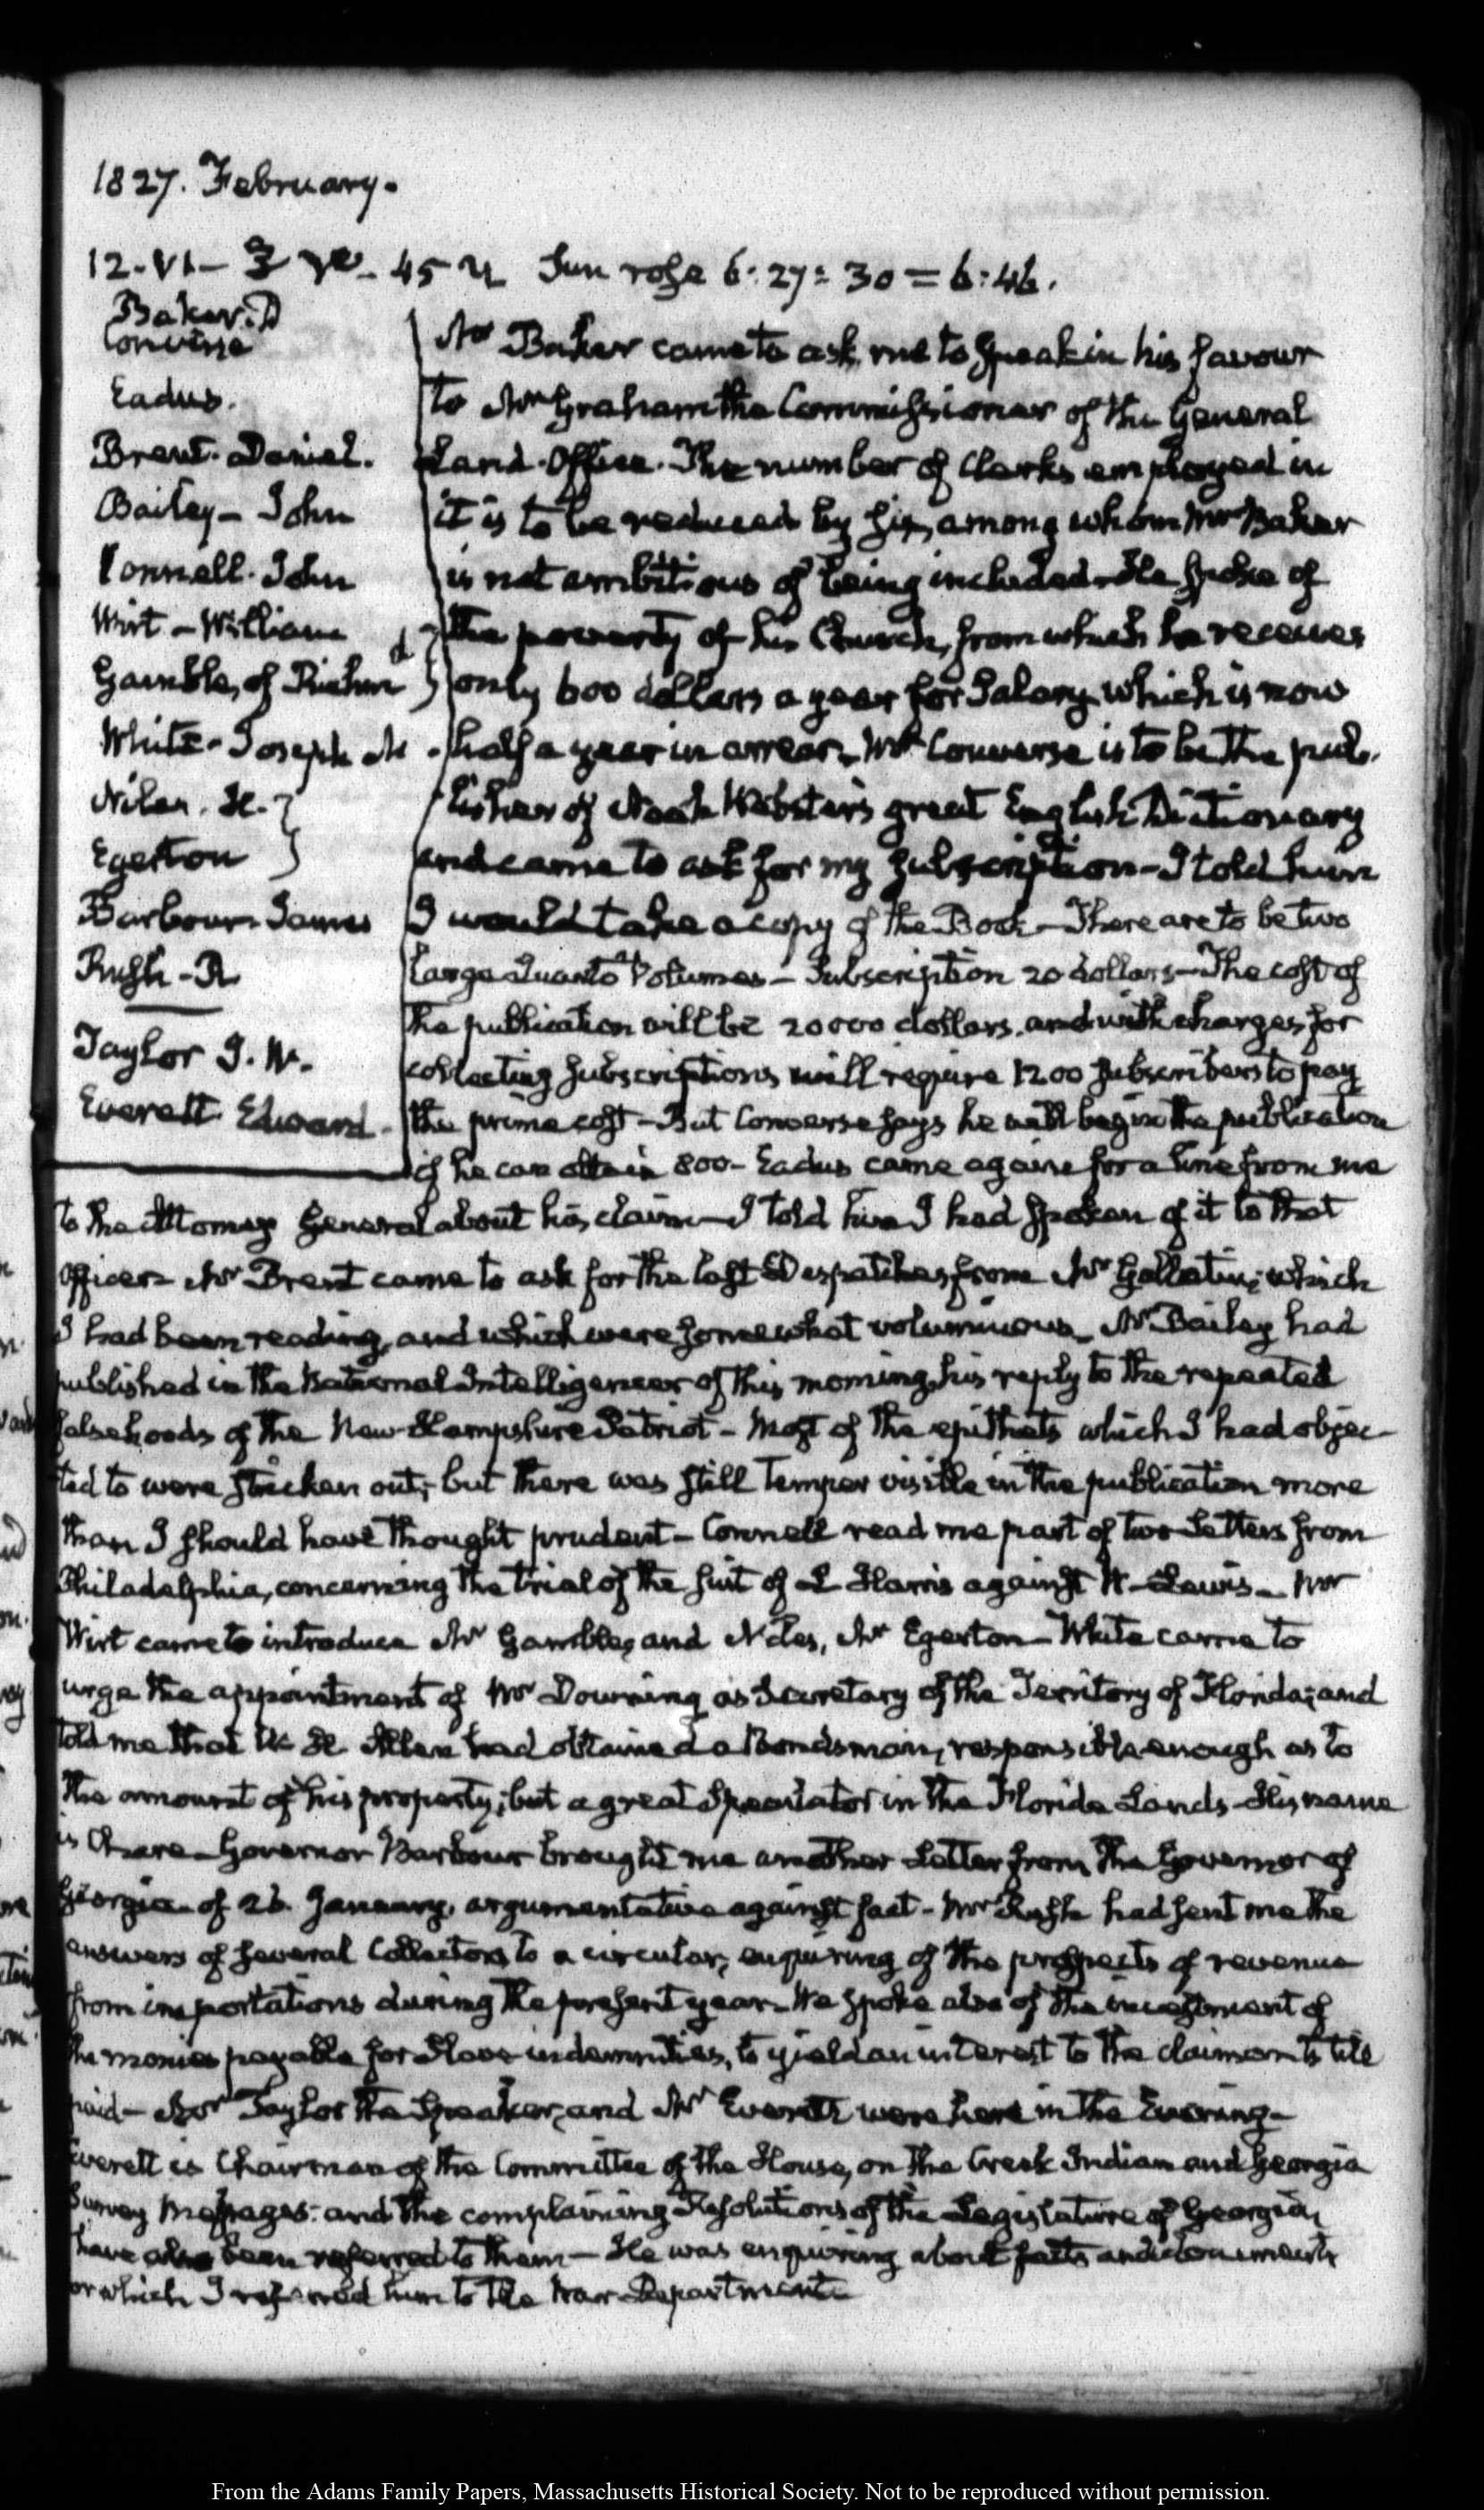 1827. February.
12. VI. 45 Sun rose 6:27:30 = 6:46.
Baker. D
Converse
Eadus.
Brent. Daniel.
Bailey - John
Connell. John
Wirt - William
Gamble, of Richmd
White - Joseph M
Niles. H.
Egerton
Barbour. James
Rush - R
Taylor J. W.
Everett. Edward.
Mr Baker came to ask me to speak in his favour
to Mr Graham the Commissioner of the General
Land-Office. The number of Clerks employed in
it is to be reduced by six, among whom Mr Baker
is not ambitious of being included. He spoke of
the poverty of his Church, from which he receives
only 600 dollars a year for Salary which is now
half a year in arrear. Mr Converse is to be the pub-
lisher of Noah Webster's great English Dictionary
and came to ask for my subscription - I told him
I would take a copy of the Book - There are to be two
large Quarto Volumes - Subscription 20 dollars - The cost of
the publication will be 20000 dollars, and with charges for
collecting subscriptions will require 1200 subscribers to pay
the prime cost - But Converse says he will begin the publication
if he can obtain 800 - Eadus came again for a line from me
to the Attorney General about his claim - I told him I had spoken of it to that
Officer - Mr Brent came to ask for the last Despatches from Mr Gallatin, which
I had been reading, and which were somewhat voluminous - Mr Bailey had
published in the National Intelligencer of this morning, his reply to the repeated
falsehoods of the New-Hampshire Patriot - Most of the epithets which I had objec-
ted to were stricken out; but there was still temper visible in the publication more
than I should have thought prudent - Connell read me part of two Letters from
Philadelphia, concerning the trial of the suit of L Harris against W. Lewis - Mr
Wirt came to introduce Mr Gamble, and Niles, Mr Egerton - White came to
urge the appointment of Mr Downing as Secretary of the Territory of Florida; and
told me that W H Allen had obtained a Bondsman, responsible enough as to
the amount of his property; but a great Speculator in the Florida Lands - His name
is Chare - Governor Barbour brought me another Letter from the Governor of
Georgia of 26. January, argumentative against fact - Mr Rush had sent me the
answers of several Collectors to a circular, enquiring of the prospects of revenue
from importations during the present year - We spoke also of the investment of
the monies payable for Slave indemnities, to yield an interest to the claimants till
paid - Mr Taylor the Speaker, and Mr Everett were here in the Evening -
Everett is Chairman of the Committee of the House, on the Creek Indian and Georgia
Survey Messages: and the complaining Resolutions of the Legislature of Georgia,
have also been referred to them - He was enquiring about facts and documents
for which I referred him to the War Department
From the Adams Family Papers, Massachusetts Historical Society. Not to be reproduced without permission.